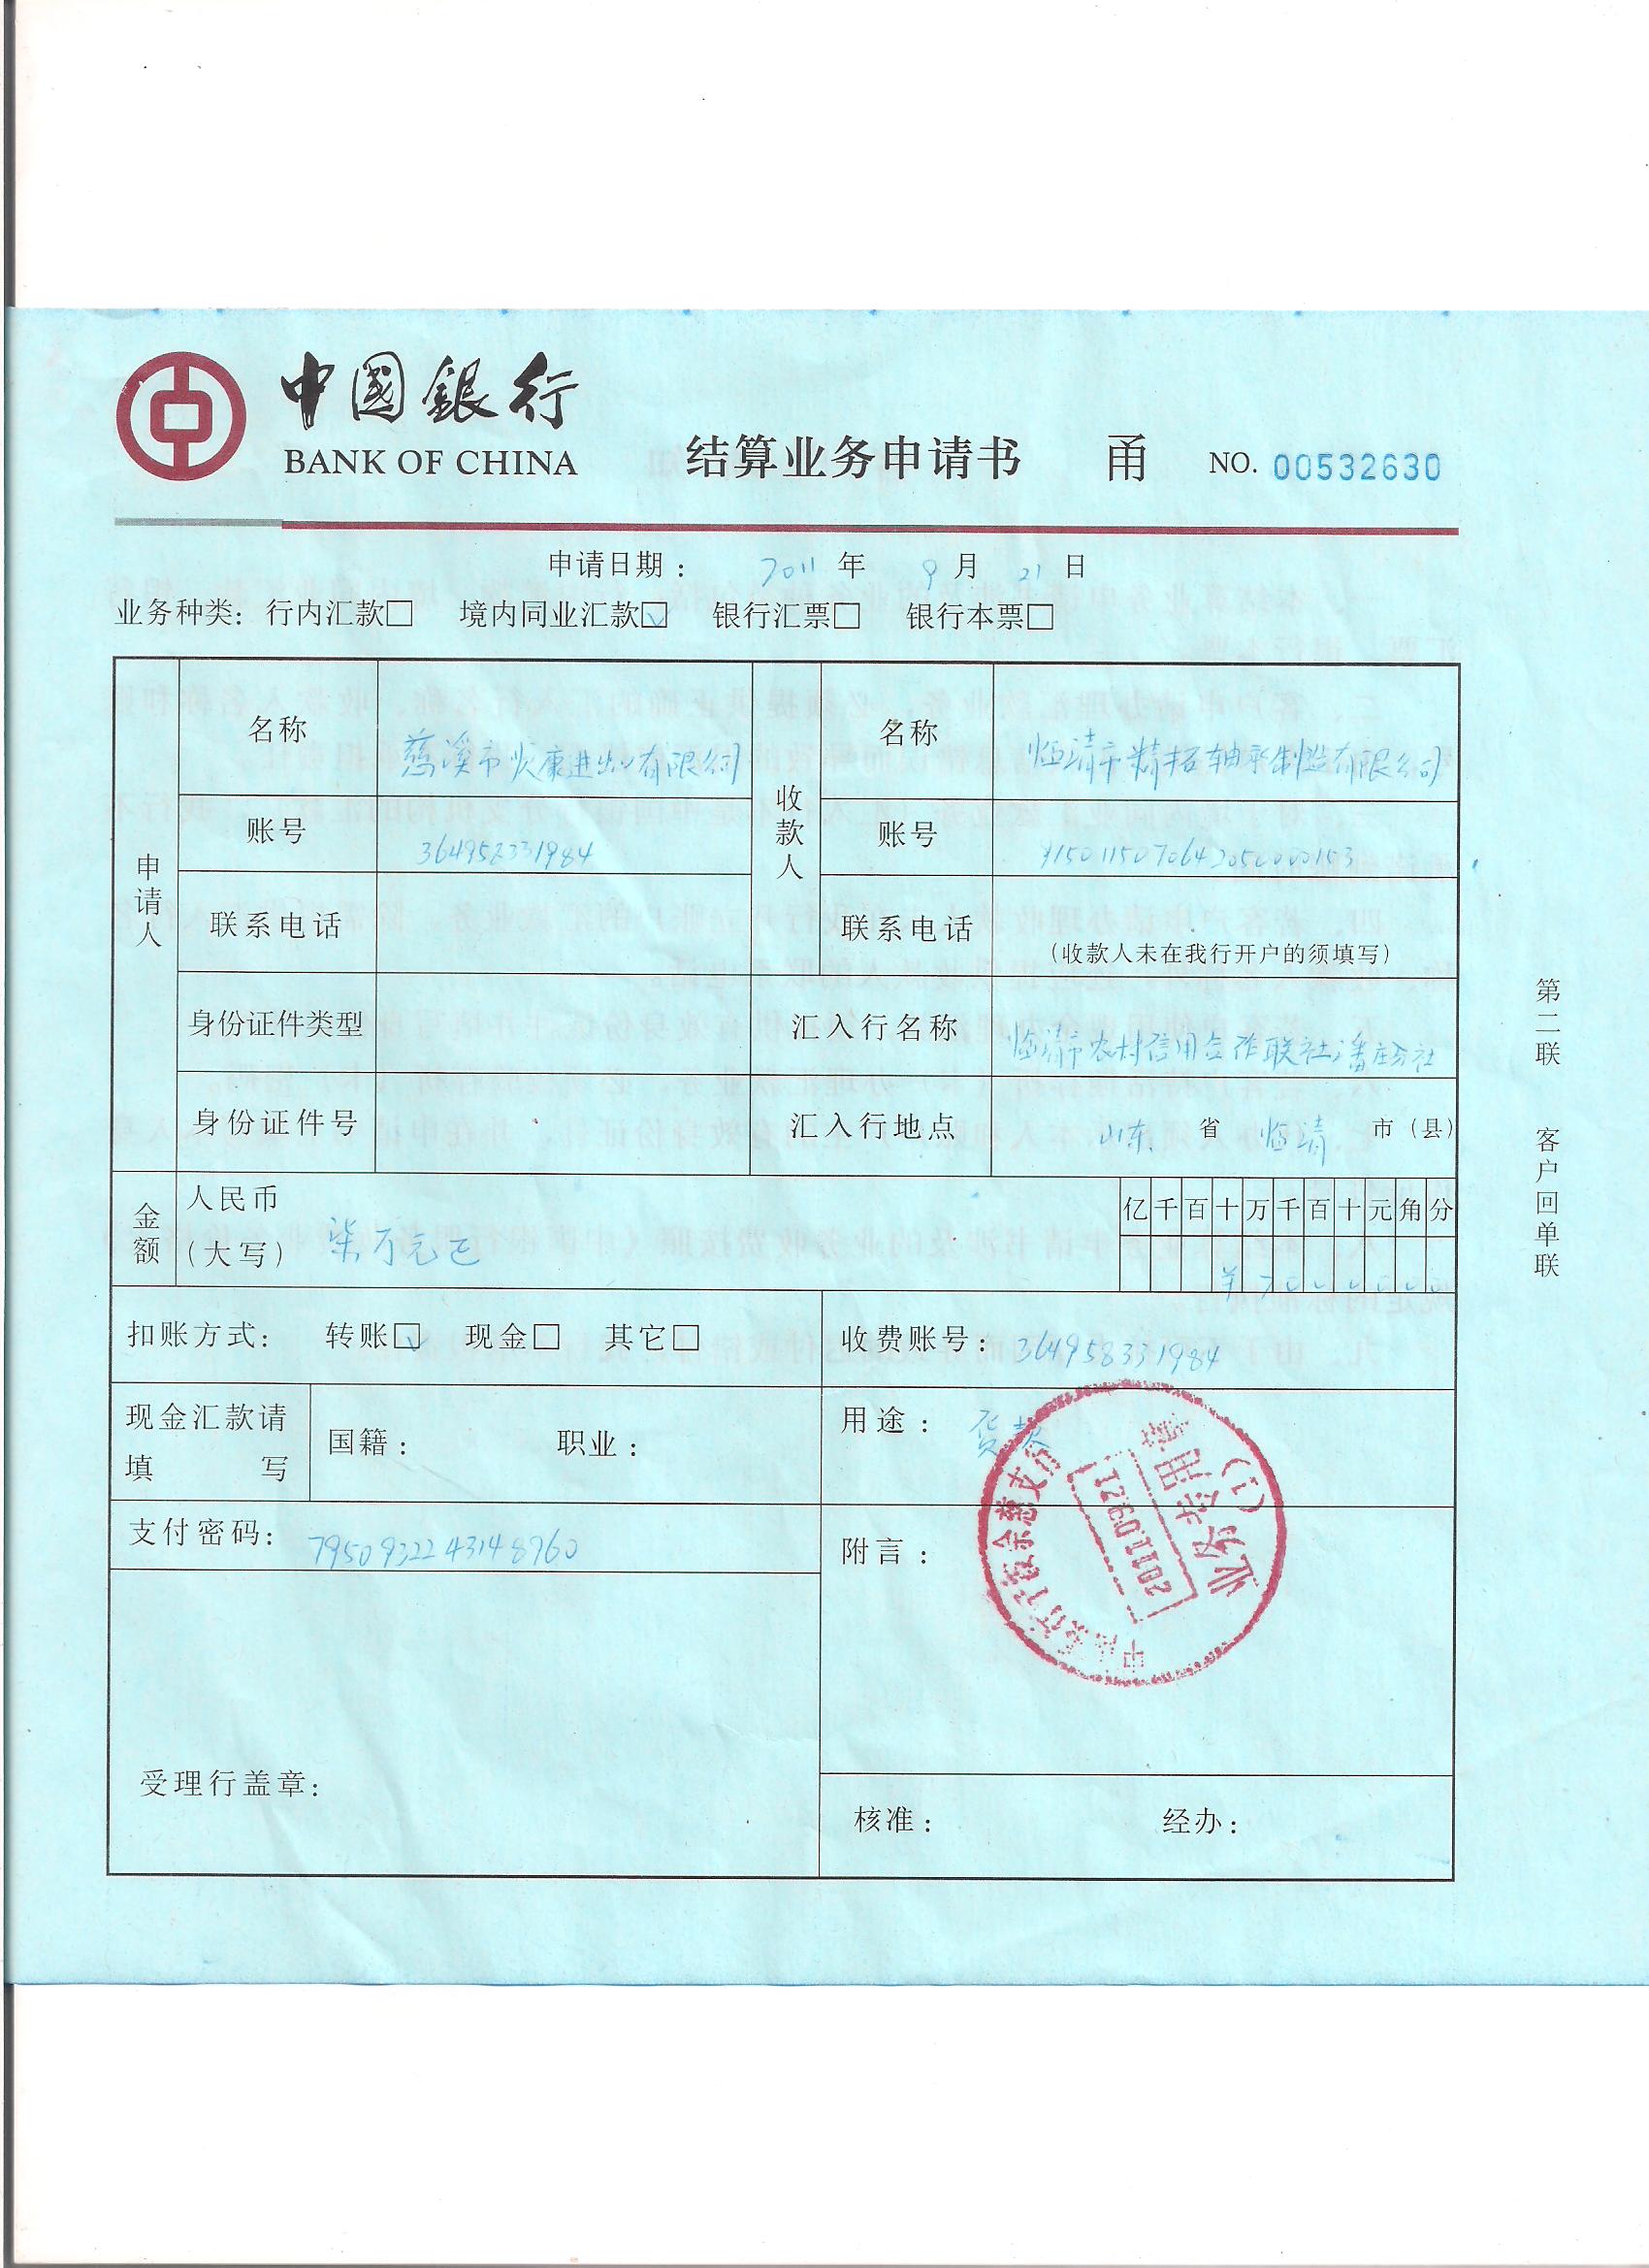 中國銀行
BANK OF CHINA
结算业务申请书 甬 NO. 00532630
申请日期： 2011 年 9 月 21 日
业务种类: 行内汇款□ 境内同业汇款☑ 银行汇票□ 银行本票□
申请人
名称 慈溪市 康进出口有限公司
收款人
名称 临清市精拓轴承制造有限公司
账号 364958331984
账号 9150115070642050000153
联系电话
联系电话 （收款人未在我行开户的须填写）
身份证件类型
汇入行名称 临清市农村信用合作联社潘庄分社
身份证件号
汇入行地点 山东 省 临清 市（县）
金额
人民币
（大写） 柒万元正
亿千百十万千百十元角分
¥7000000
扣账方式: 转账☑ 现金□ 其它□
收费账号: 364958331984
现金汇款请
填 写
国籍: 职业:
用途: 货款
支付密码: 7950932243148960
附言:
业务专用章
(1)
20110921
受理行盖章:
核准: 经办:
第二联 客户回单联